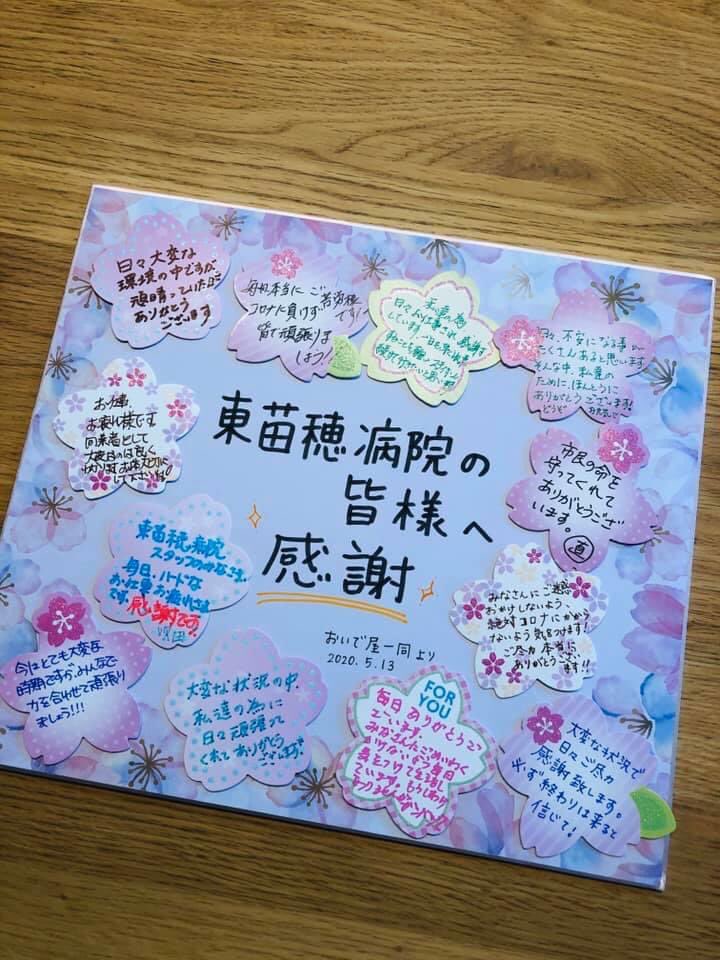 東苗穂病院の
皆様へ
感謝
おいで屋一同より
2020.5.13
日々大変な
環境の中ですが
頑晴っていただき
ありがとう
ございます
毎日本当にご苦労様です!
コロナに負けず
皆で頑張りま
しょう!
日々、不安になる事が
たくさんあると思います
そんな中、私達の
ために、ほんとうに
ありがとうございます!
お仕事、
お疲れ様です
同業者として
市民の命を
守ってくれて
ありがとうござ
います。
直
東苗穂病院
スタッフのみなさま
毎日、ハードな
お仕事お疲れさま
です。感謝です。
みなさんにご迷惑
おかけしないよう、
絶対コロナにかから
ないよう気をつけます!
ご尽力本当に
ありがとうござい
ます!!
今はとても大変な
時期ですが、みんなで
力を合わせて頑張り
ましょう!!!
大変な状況の中、
私達の為に
日々頑張って
くれてありがとう
ございます!
FOR
YOU
毎日ありがとうご
ざいます。
みなさんにごめいわく
かけないよう毎日
気をつけて生活し
ています。
大変な状況で
日々ご尽力
感謝致します。
必ず終わりは来ると
信じて!